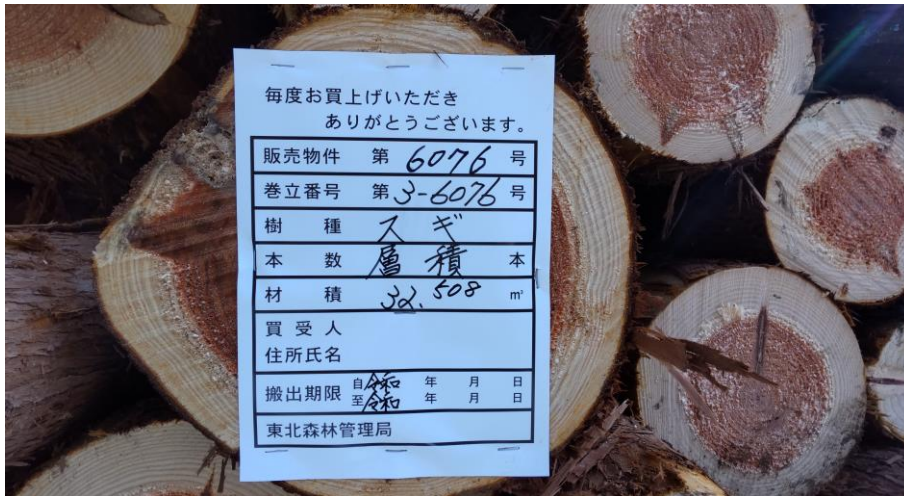 毎度お買上げいただき
ありがとうございます。
販売物件 第 6076 号
巻立番号 第 3-6076 号
樹種 スギ
本数 層積 本
材積 32.508 m³
買受人
住所氏名
搬出期限 自 令和 年 月 日
至 令和 年 月 日
東北森林管理局